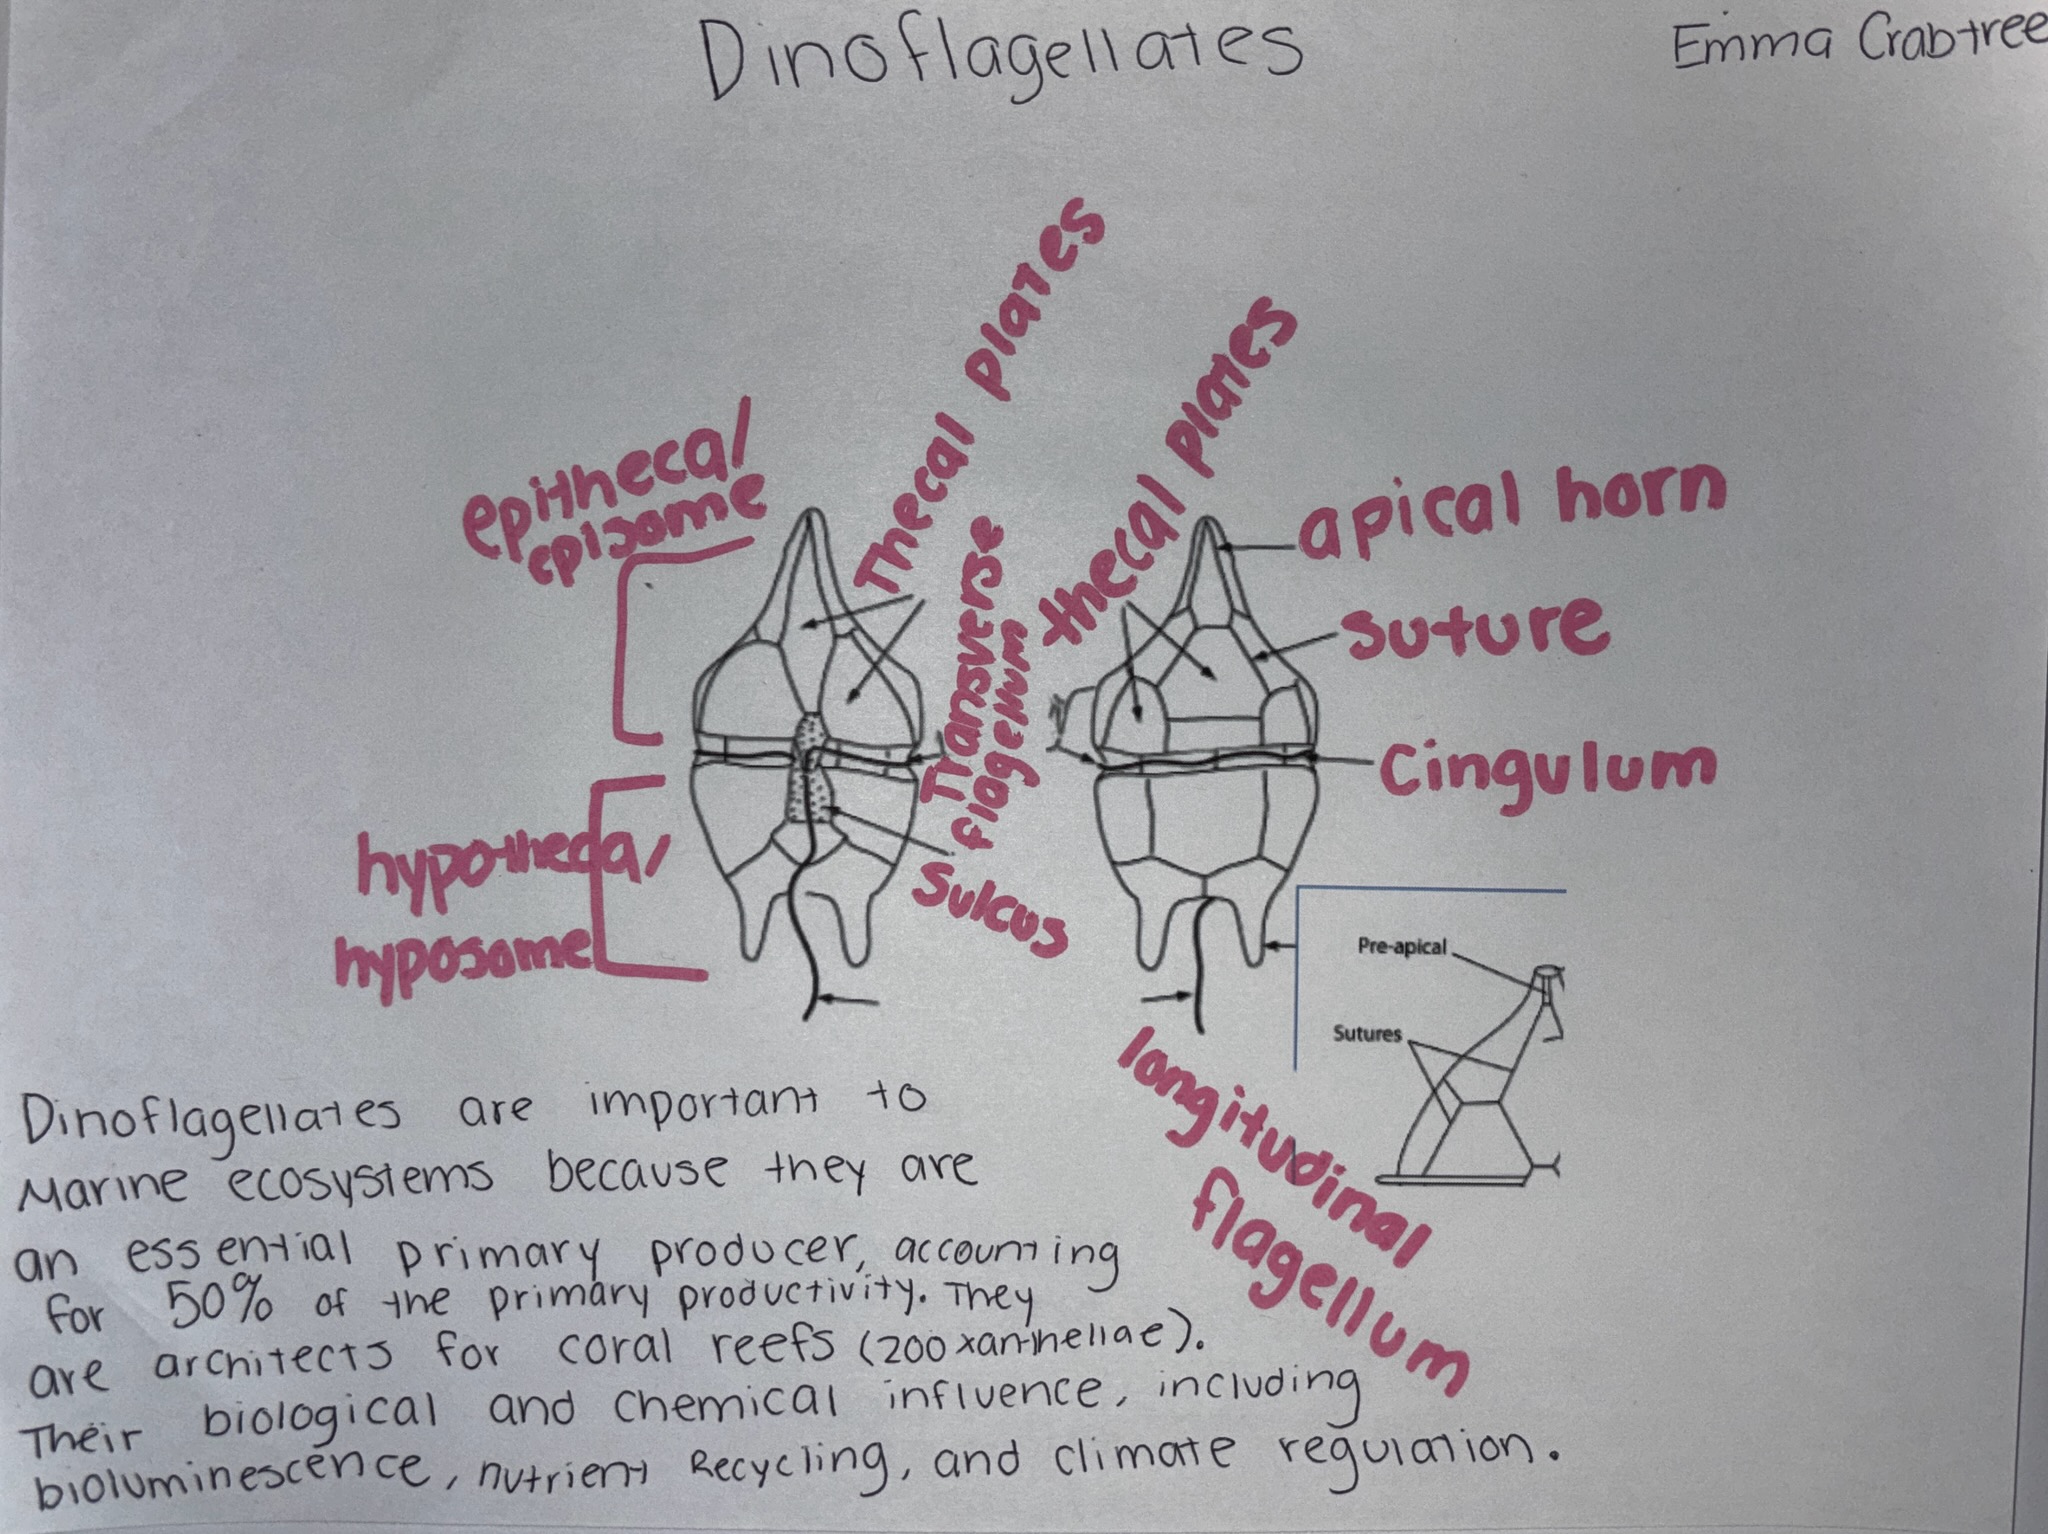 Dinoflagellates
Emma Crabtree
Thecal plates
thecal plates
epitheca/
episome
apical horn
Transverse
flagellum
suture
Cingulum
hypotheca/
hyposome
Sulcus
Pre-apical
Sutures
longitudinal
flagellum
Dinoflagellates are important to
Marine ecosystems because they are
an essential primary producer, accounting
for 50% of the primary productivity. They
are architects for coral reefs (200xanthellae).
Their biological and chemical influence, including
bioluminescence, nutrient Recycling, and climate regulation.